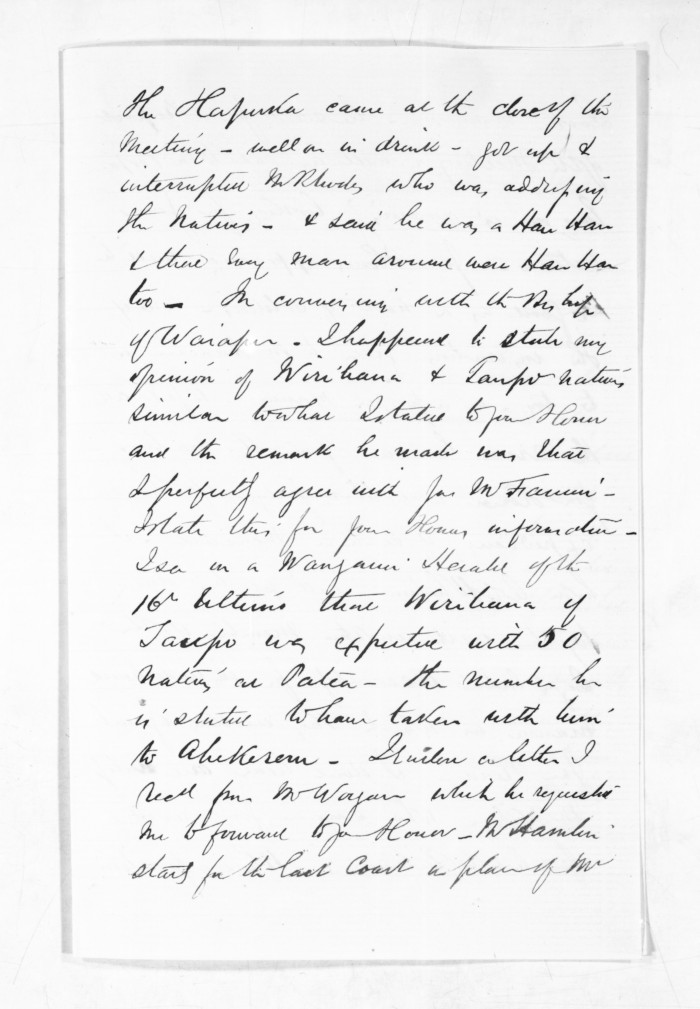 the Hapuka came at the close of the
Meeting - well on in drink - got up &
interrupted Mr Rhodes who was addressing
the Natives - & said he was a Hau Hau
& that every man around were Hau Hau
too - In conversing with the Bishop
of Waiapu - I happened to state my
opinion of Wirihana & Taupo natives
similar to what I stated to your Honor
and the remark he made was that
I perfectly agree with you Mr
I state this for your Honors information -
I see in a Wanganui Herald of the
16th Ultimo that Wirihana of
Taupo was expected with 50
Natives at Patea - the number he
is stated to have taken with him
to Ahikereru - I enclose a letter I
recd from Mr Worgan which he requested
me to forward to your Honor - Mr Hamlin
starts for the East Coast in place of Mr